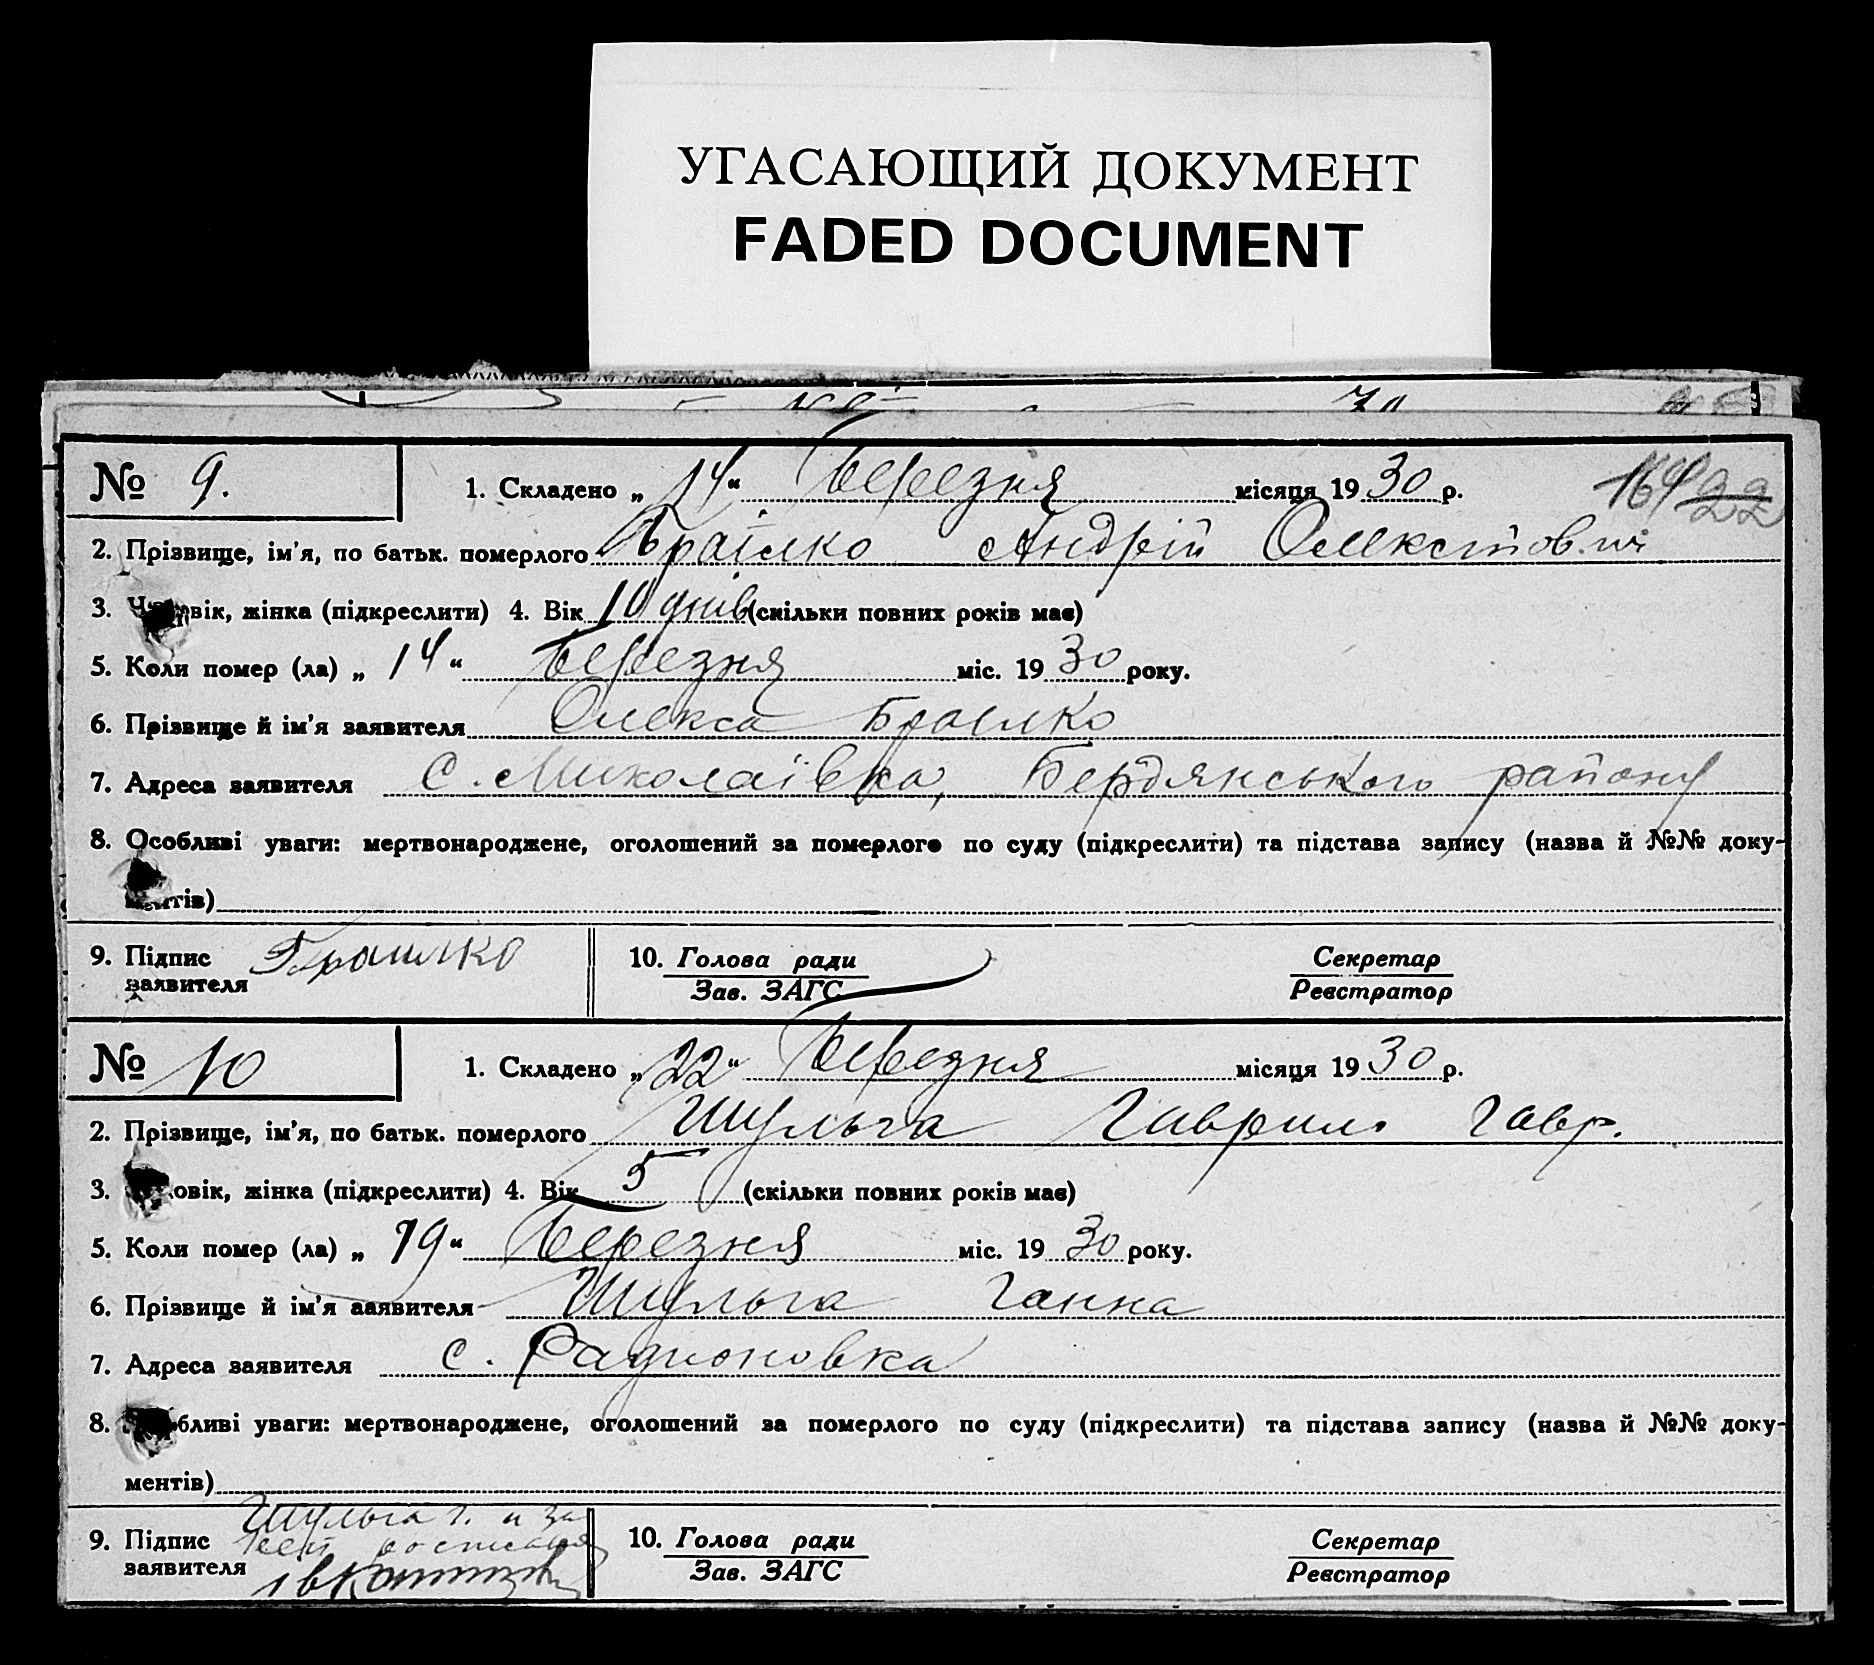 УГАСАЮЩИЙ ДОКУМЕНТ
FADED DOCUMENT
№ 9. 1. Складено „ 14 “ Березня місяця 19 30 р. 164
2. Прізвище, ім'я, по батьк. померлого Браїлко Андрій Олексійович
3. Чоловік, жінка (підкреслити) 4. Вік 10 днів (скільки повних років має)
5. Коли помер (ла) „ 14 “ Березня міс. 19 30 року.
6. Прізвище й ім'я заявителя Олекса Браілко
7. Адреса заявителя С. Миколаївка, Бердянського району
8. Особливі уваги: мертвонароджене, оголошений за померлого по суду (підкреслити) та підстава запису (назва й №№ доку-
ментів)
9. Підпис заявителя Браилко 10. Голова ради Секретар
Зав. ЗАГС Реєстратор
№ 10 1. Складено „ 22 “ Березня місяця 19 30 р.
2. Прізвище, ім'я, по батьк. померлого Шульга Гаврило Гавр.
3. овік, жінка (підкреслити) 4. Вік 5 (скільки повних років має)
5. Коли помер (ла) „ 19 “ Березня міс. 19 30 року.
6. Прізвище й ім'я заявителя Шульга Ганна
7. Адреса заявителя с. Радионовка
8. бливі уваги: мертвонароджене, оголошений за померлого по суду (підкреслити) та підстава запису (назва й №№ доку-
ментів)
9. Підпис заявителя Шульга Г. и за 10. Голова ради Секретар
Зав. ЗАГС Реєстратор